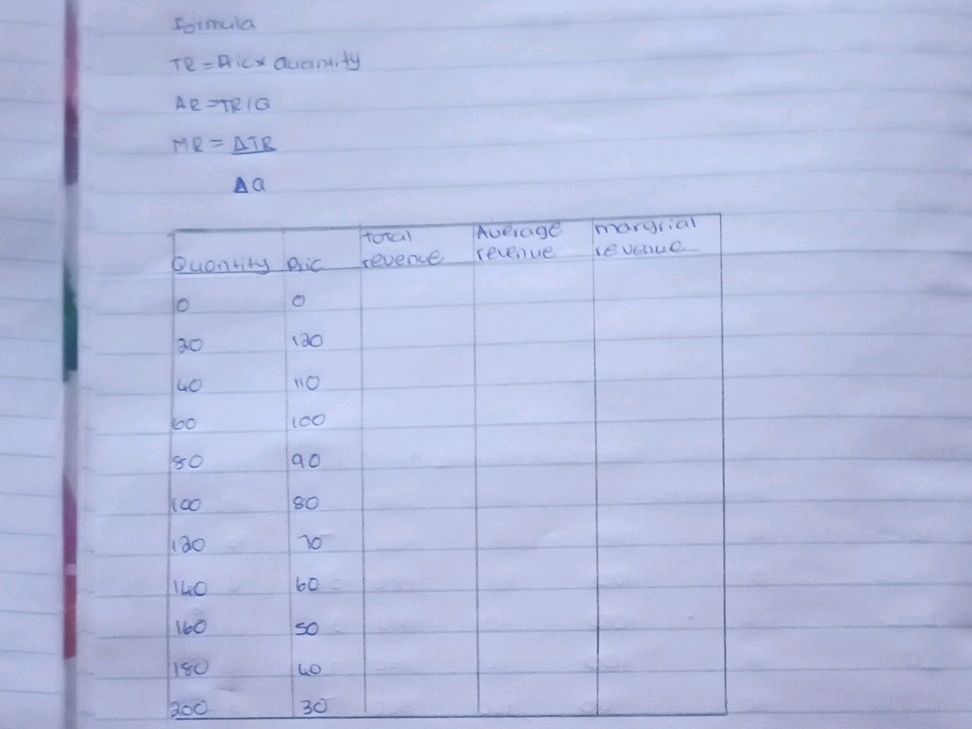 Formula
TR = Pric x Quantity
AR = TR/Q
MR = ΔTR
ΔQ
Quantity Pric total revenue Average revenue margrial revenue
0 0
20 120
40 110
60 100
80 90
100 80
120 70
140 60
160 50
180 40
200 30